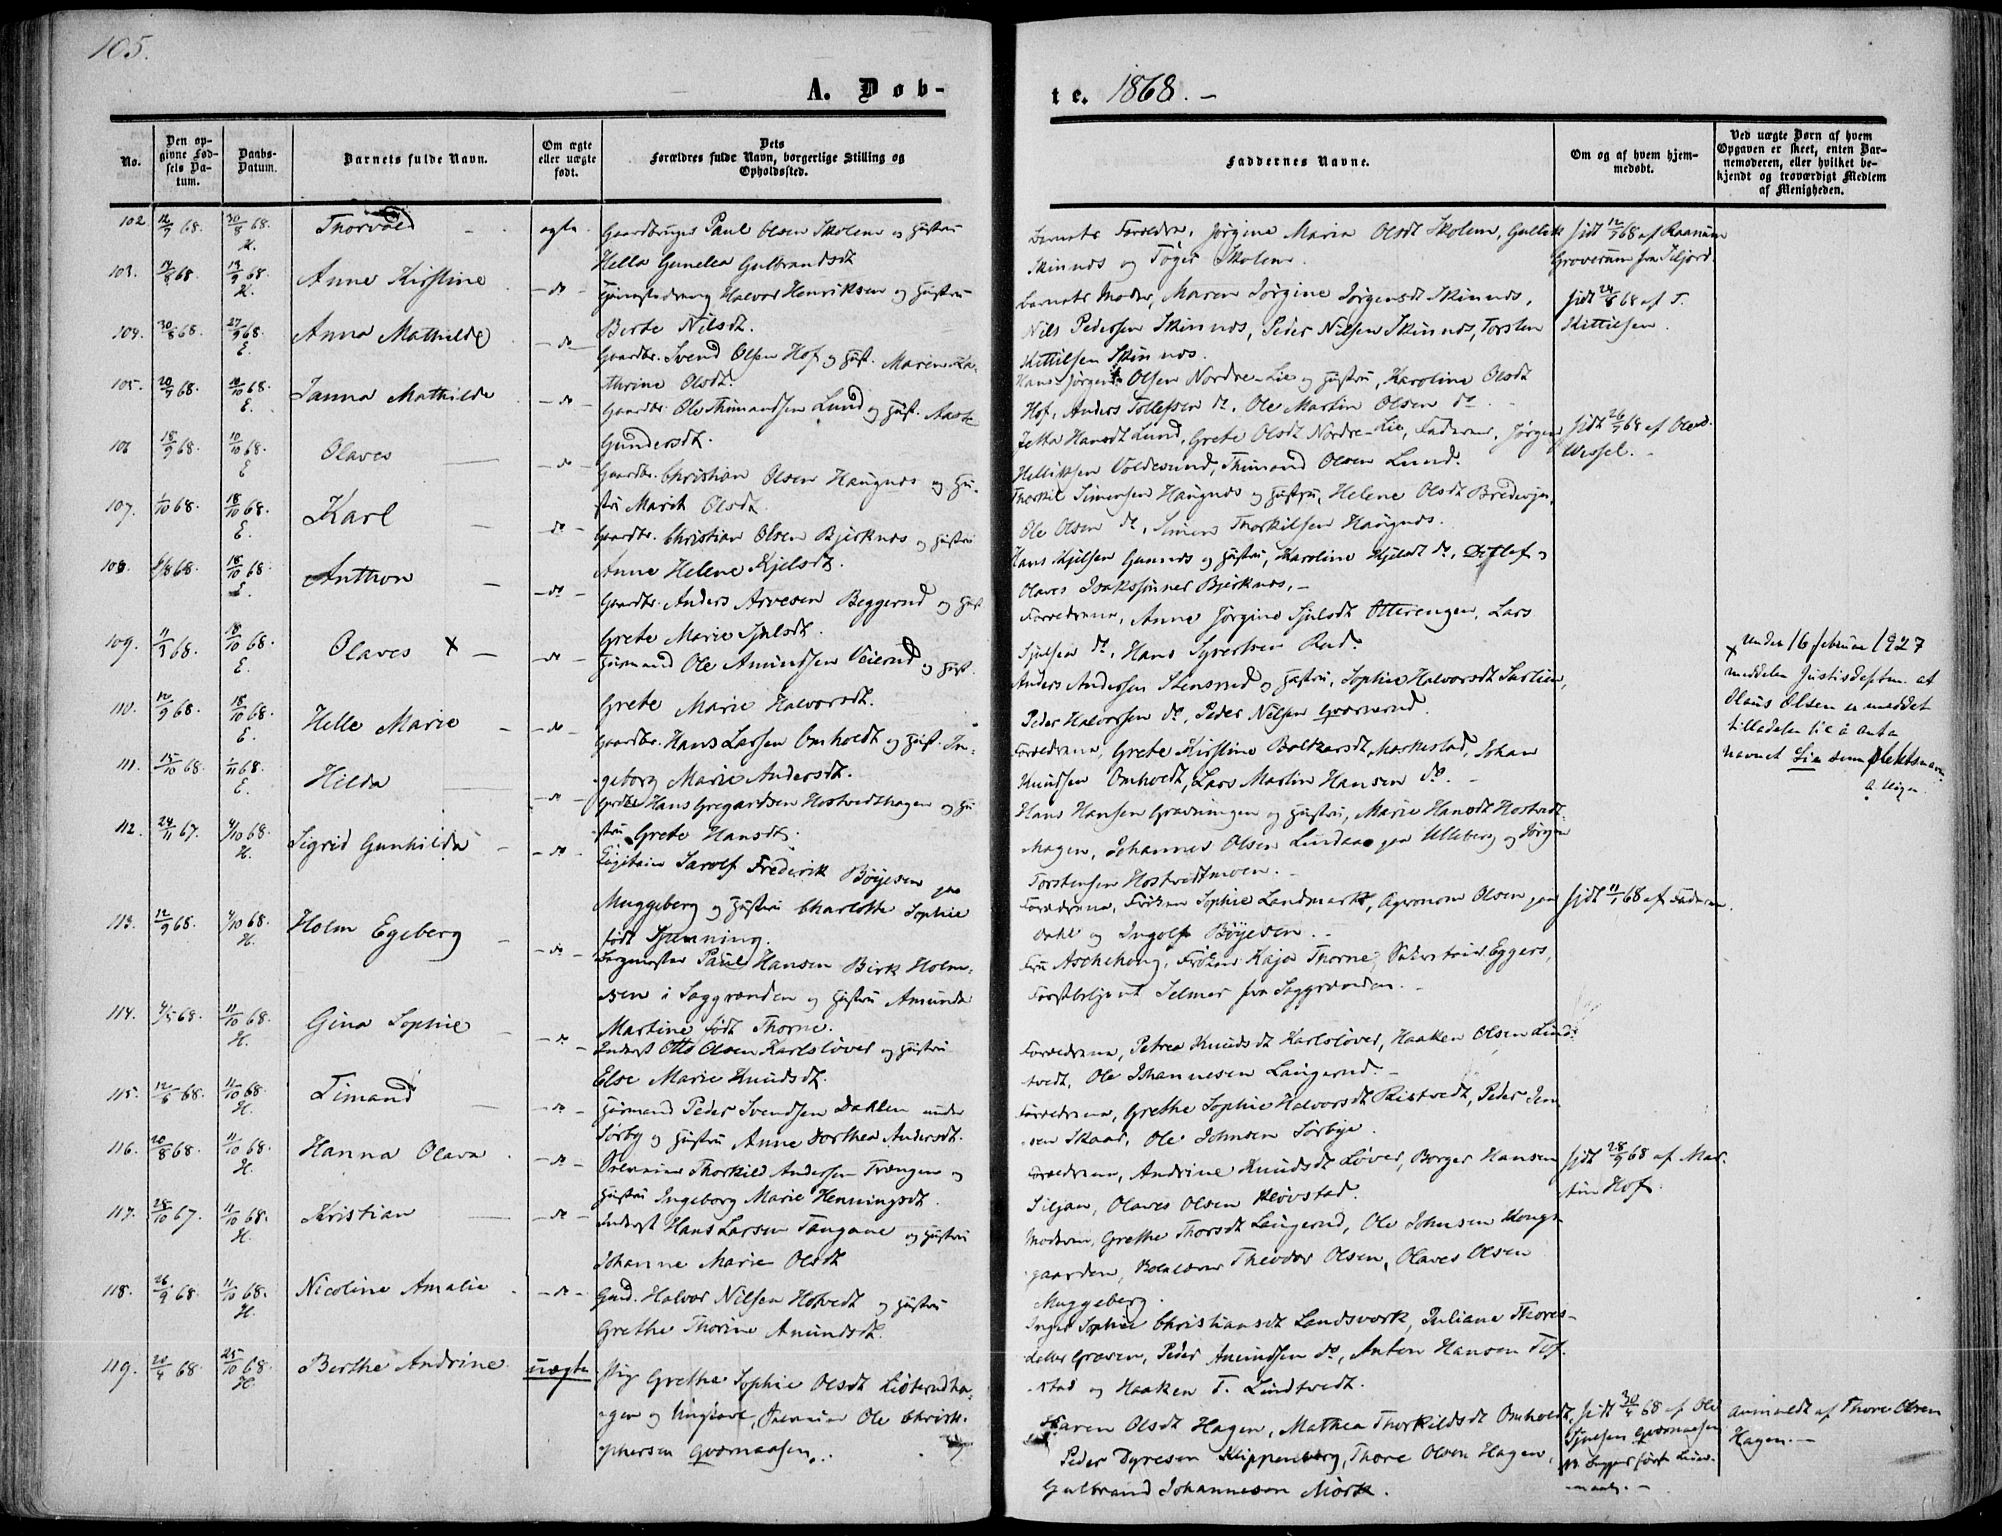 105.
A. Døb-
te. 1868. -
No.
Den op-
givne Fød-
sels Da-
tum.
Daabs-
Datum.
Barnets fulde Navn.
Om ægte
eller uægte
født.
Dets
Forældres fulde Navn, borgerlige Stilling og
Opholdssted.
Faddernes Navne.
Om og af hvem hjem-
medøbt.
Ved uægte Børn af hvem
Opgaven er skeet, enten Bar-
nemoderen, eller hvilket be-
kjendt og troværdigt Medlem
af Menigheden.
102 12/7 68. 30/8 68. K. Thorvald - ægte. Gaardbruger Paul Olsen Skolem og Hustru
Helle Gunelea Gulbrandsdt
103. 68. 13/9 68. K. Anne Kirstine - do - Halvor Henriksen og Hustru
Berte Nilsdt.
104. 30/8 68. 27/9 68. E. Anna Mathilde - do - Gaardbr. Svend Olsen Hof og Hust. Maren Ka-
thrine Olsdt.
105. 20/9 68. 10/10 68. E. Janna Mathilde - do - Gaardbr. Ole Thimandsen Lund og Hust. Aaste
Gundersdt.
106 18/9 68. 10/10 68. E Olaves - do - Gaardbr. Christian Olsen Haugnæs og Hu-
stru Marit Olsdt.
107. 1/10 68. 18/10 68. E. Karl - do - Gaardbr. Christian Olsen Bjerknæs og Hustru
Anne Helene Kjelsdt.
108. 68. 18/10 68. E. Anthon - do - Gaardbr. Anders Arvesen Beggerud og Hust
Grete Marie Sjulsdt.
109. 68. 18/10 68. E. Olaves X - do - Husmand Ole Amundsen Veierud og Hust.
Grete Marie Halvorsdt.
110. 12/9 68. 18/10 68. E. Helle Marie - do - Gaardbr. Hans Larsen Omholdt og Hust. In-
geborg Marie Andersdt.
111. 15/10 68. 1/11 68. E. Hilda - do - Hans Gregardsen Hostvedthagen og Hu
stru Grete Hansdt.
112. 24/11 67. 4/10 68. H. Sigrid Gunhilda - do - Sarolf Frederik Böyesen paa
Muggeberg og Hustru Charlotte Sophie
født Hjanning.
113. 12/9 68. 4/10 68. H. Holm Egeberg - do - Paul Hansen Birk Holm-
sen i Saggrenden og Hustru Amunda
Martine født Thorne.
114. 68. 11/10 68. H. Gina Sophie - do - Inderst Otto Olsen Karlsløver og Hustru
Else Marie Knudsdt.
115. 12/6 68. 11/10 68. H. Timand - do - Husmand Peder Svendsen Dahlen under
Sørby og Hustru Anne Dorthea Andersdt.
116. 20/8 68. 11/10 68. H. Hanna Olava - do - Thorkild Andersen Trængen og
Hustru Ingeborg Marie Henningsdt.
117. 28/10 67. 11/10 68. H. Kristian - do - Inderst Hans Larsen Tangane og Hustru
Johanne Marie Olsdt
118. 26/9 68. 11/10 68. H. Nicoline Amalie - do - Halvor Nilsen Hotvedt og Hustru
Grethe Thorine Amundsdt.
119. 20/4 68 25/10 68. H. Berthe Andrine uægte Pig. Grethe Sophie Olsdt Listerudha-
gen og Ungkarl, Ole Christ-
phersen Qværnaasen.
Barnets Forældre, Jørgine Maria Olsdt Skolem, Gullek
Skinnæs og Töger Skolem.
Barnets Moder, Maren Jørgine Jörgensdt Skinnæs,
Nils Pedersen Skinnæs, Peder Nilsen Skinnæs, Torsten
Kittilsen Skinnæs.
Hans Jörgen Olsen Nordre-Lie og Hustru, Karoline Olsdt
Hof, Anders Tollefsen do, Ole Martin Olsen do -
Jetta Hansdt Lund, Grete Olsdt Nordre-Lie, Faderen, Jörgen
Helliksen Voldesund, Thimand Olsen Lund.
Thorkil Simensen Haugnæs og Hustru, Helene Olsdt
Ole Olsen do, Simen Thorkilsen Haugnæs.
Hans Kjelsen Gunnæs og Hustru, Karoline Kjelsdt do, Ditlef og
Olaves Isakssønner Bjerknæs. -
Forældrene, Anne Jørgine Sjulsdt Otterengen, Lars
Sjulsen do, Hans Syvertsen Rud.
Anders Andersen Stensrud og Hustru, Sophie Halvorsdt
Peder Halvorsen do, Peder Nilsen Qværnerud.
Forældrene, Grete Kirstine Balkersdt, Johan
Knudsen Omholdt, Lars Martin Hansen do. -
Hans Hansen Gravningen og Hustru, Marie Hansdt Hostvedt-
hagen, Johannes Olsen Lindaas paa Ulleberg og Jörgen
Torstensen Hostvedtmoen. -
Forældrene, Fröken Sophie Landmark, Agronom Olsen paa
Dahl og Ingolf Böyesen. -
Fru Aschehoug, Fröken Kaja Thorne, Eggers,
Selmer fra Saggrænden. -
Forældrene, Petrea Knudsdt Karlsløver, Haaken Olsen Lind-
tvedt, Ole Johannesen Langerud. -
Forældrene, Grethe Sophie Halvorsdt Ristvedt, Peder Jen-
sen Skaar, Ole Johnsen Sørbye.
Forældrene, Andrine Knudsdt Løver, Borger Hansen
Siljan, Olaves Olsen Kløvstad.
Moderen, Grethe Thorsdt Langerud, Ole Johnsen Kongs-
gaarden, Theodor Olsen, Olaves Olsen
Muggeberg.
Inger Sophie Christiansdt Landsverk, Juliane Thores-
datter Græsen, Peder Amundsen do, Anton Hansen Tof-
stad og Haaken T. Lindtvedt.
Karen Olsdt Hagen, Mathea Thorkildsdt Omholdt,
Peder Dyresen Klippenberg, Thore Olsen Hagen,
Gulbrand Johannesen Mörk.
Hjdt 12/7 68 af Raanum
Groverum fra Siljord.
Hjdt 24/8 68 af T.
Kittilsen.
Hjdt 26/9 68 af
Wessel. -
Hjdt 11/1 68 af Faderen.
Hjdt 28/9 68 af Mar-
tin Hof.
Hjdt 30/4 68 af Ole
Sjulsen Qværnaasen
x under 16 februar 1927
meddeler Justisdeptm. at
Olaus Olsen er meddelt
tilladelse til å anta
navnet Lie som slektsnavn.
Anmeldt af Thore Olsen
Hagen. -